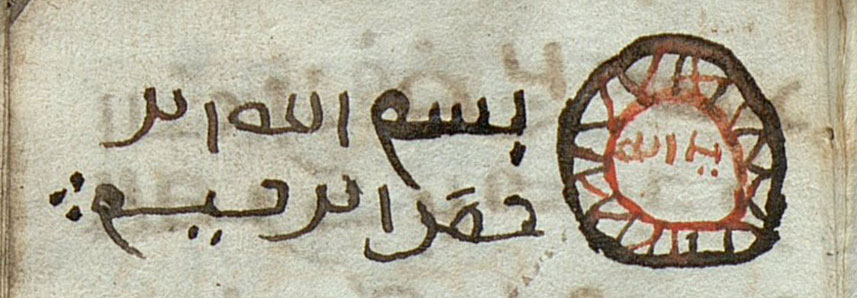 الله
بسم الله الر
حمن الرحيم